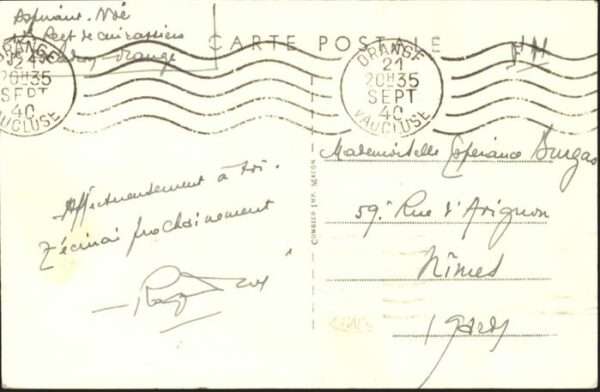 Aspirant. Noé
Regt de cuirassiers
Orange
CARTE POSTALE
F M
ORANGE
21
20H35
SEPT
40
VAUCLUSE
ORANGE
20H35
SEPT
40
VAUCLUSE
Affectueusement à toi.
T'écrirai prochainement
COMBIER IMP. MACON
Mademoiselle Espérance Burgas
59. Rue d'Avignon
Nîmes
(Gard)